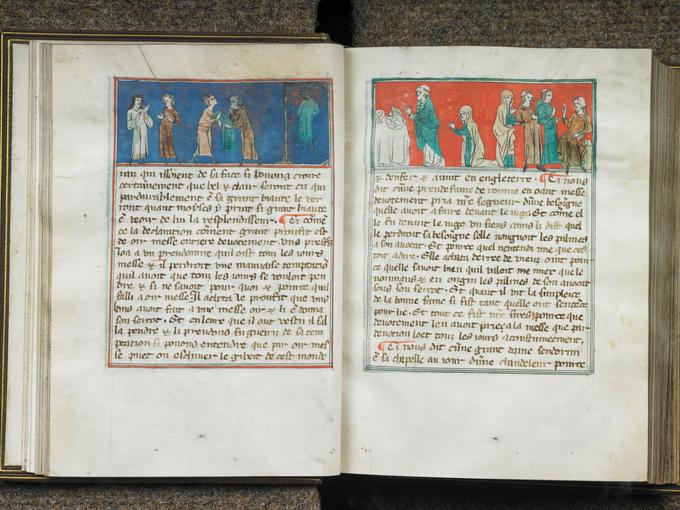 qui issoient de sa face si pouons croire
certainnement que bel & cler seront cil qui
pardurablement en sa grant biaute le ver
ront quant moyses prist si grant biaute
a veoir de lui la resplendisseur. Ci come
ce la declaration coment grant proufit est
de oir messe entiere devotement uns presch
a un preudomme qui oist tous les iours
messe & il perdroit une mauvaise temptatio
quil avoit que tous les iours se vouloit pen
dre & si ne savoit pour quoy & pource quil
failli a oir messe Il acheta le proufit que uns
hons avoit fait a une messe oir & li donna
son sercot. Et encore que il out vestu il sala
la pendre & li preudons fu gueri de sa tem
ptacion si pouons entendre que par oir mes
se puet on eschiver le gibet de cest monde
& denfer & avint en engleterre. Ci nous
dit dune preudefame de romme en oant messe
devotement pria nre seigneur dune besoigne
quelle avoit a faire devant le iuge. Et come el
le fu devant le iuge un siens amis li dist quel
le perdroit sa besoigne selle noignoit les palmes
a son avocat. Et pource quel nentendi mie que ces
toit a dire. Elle acheta derree de vieux oint pour
ce quelle savoit bien quil valoit miex que le
nouviaus & en oingn les palmes de son avocat
sous son sercot. Et quant il vit la simplece
de la bonne fame si fist tant quelle out sentence
pour lie. Et tout ce fist nre sires pource que
devotement len avoit priee a la messe que par
devotion loet tous les iours acoustumeement,
Ci nous dit cune grant dame sendormi
en sa chapelle au iour dune chandeleur pource